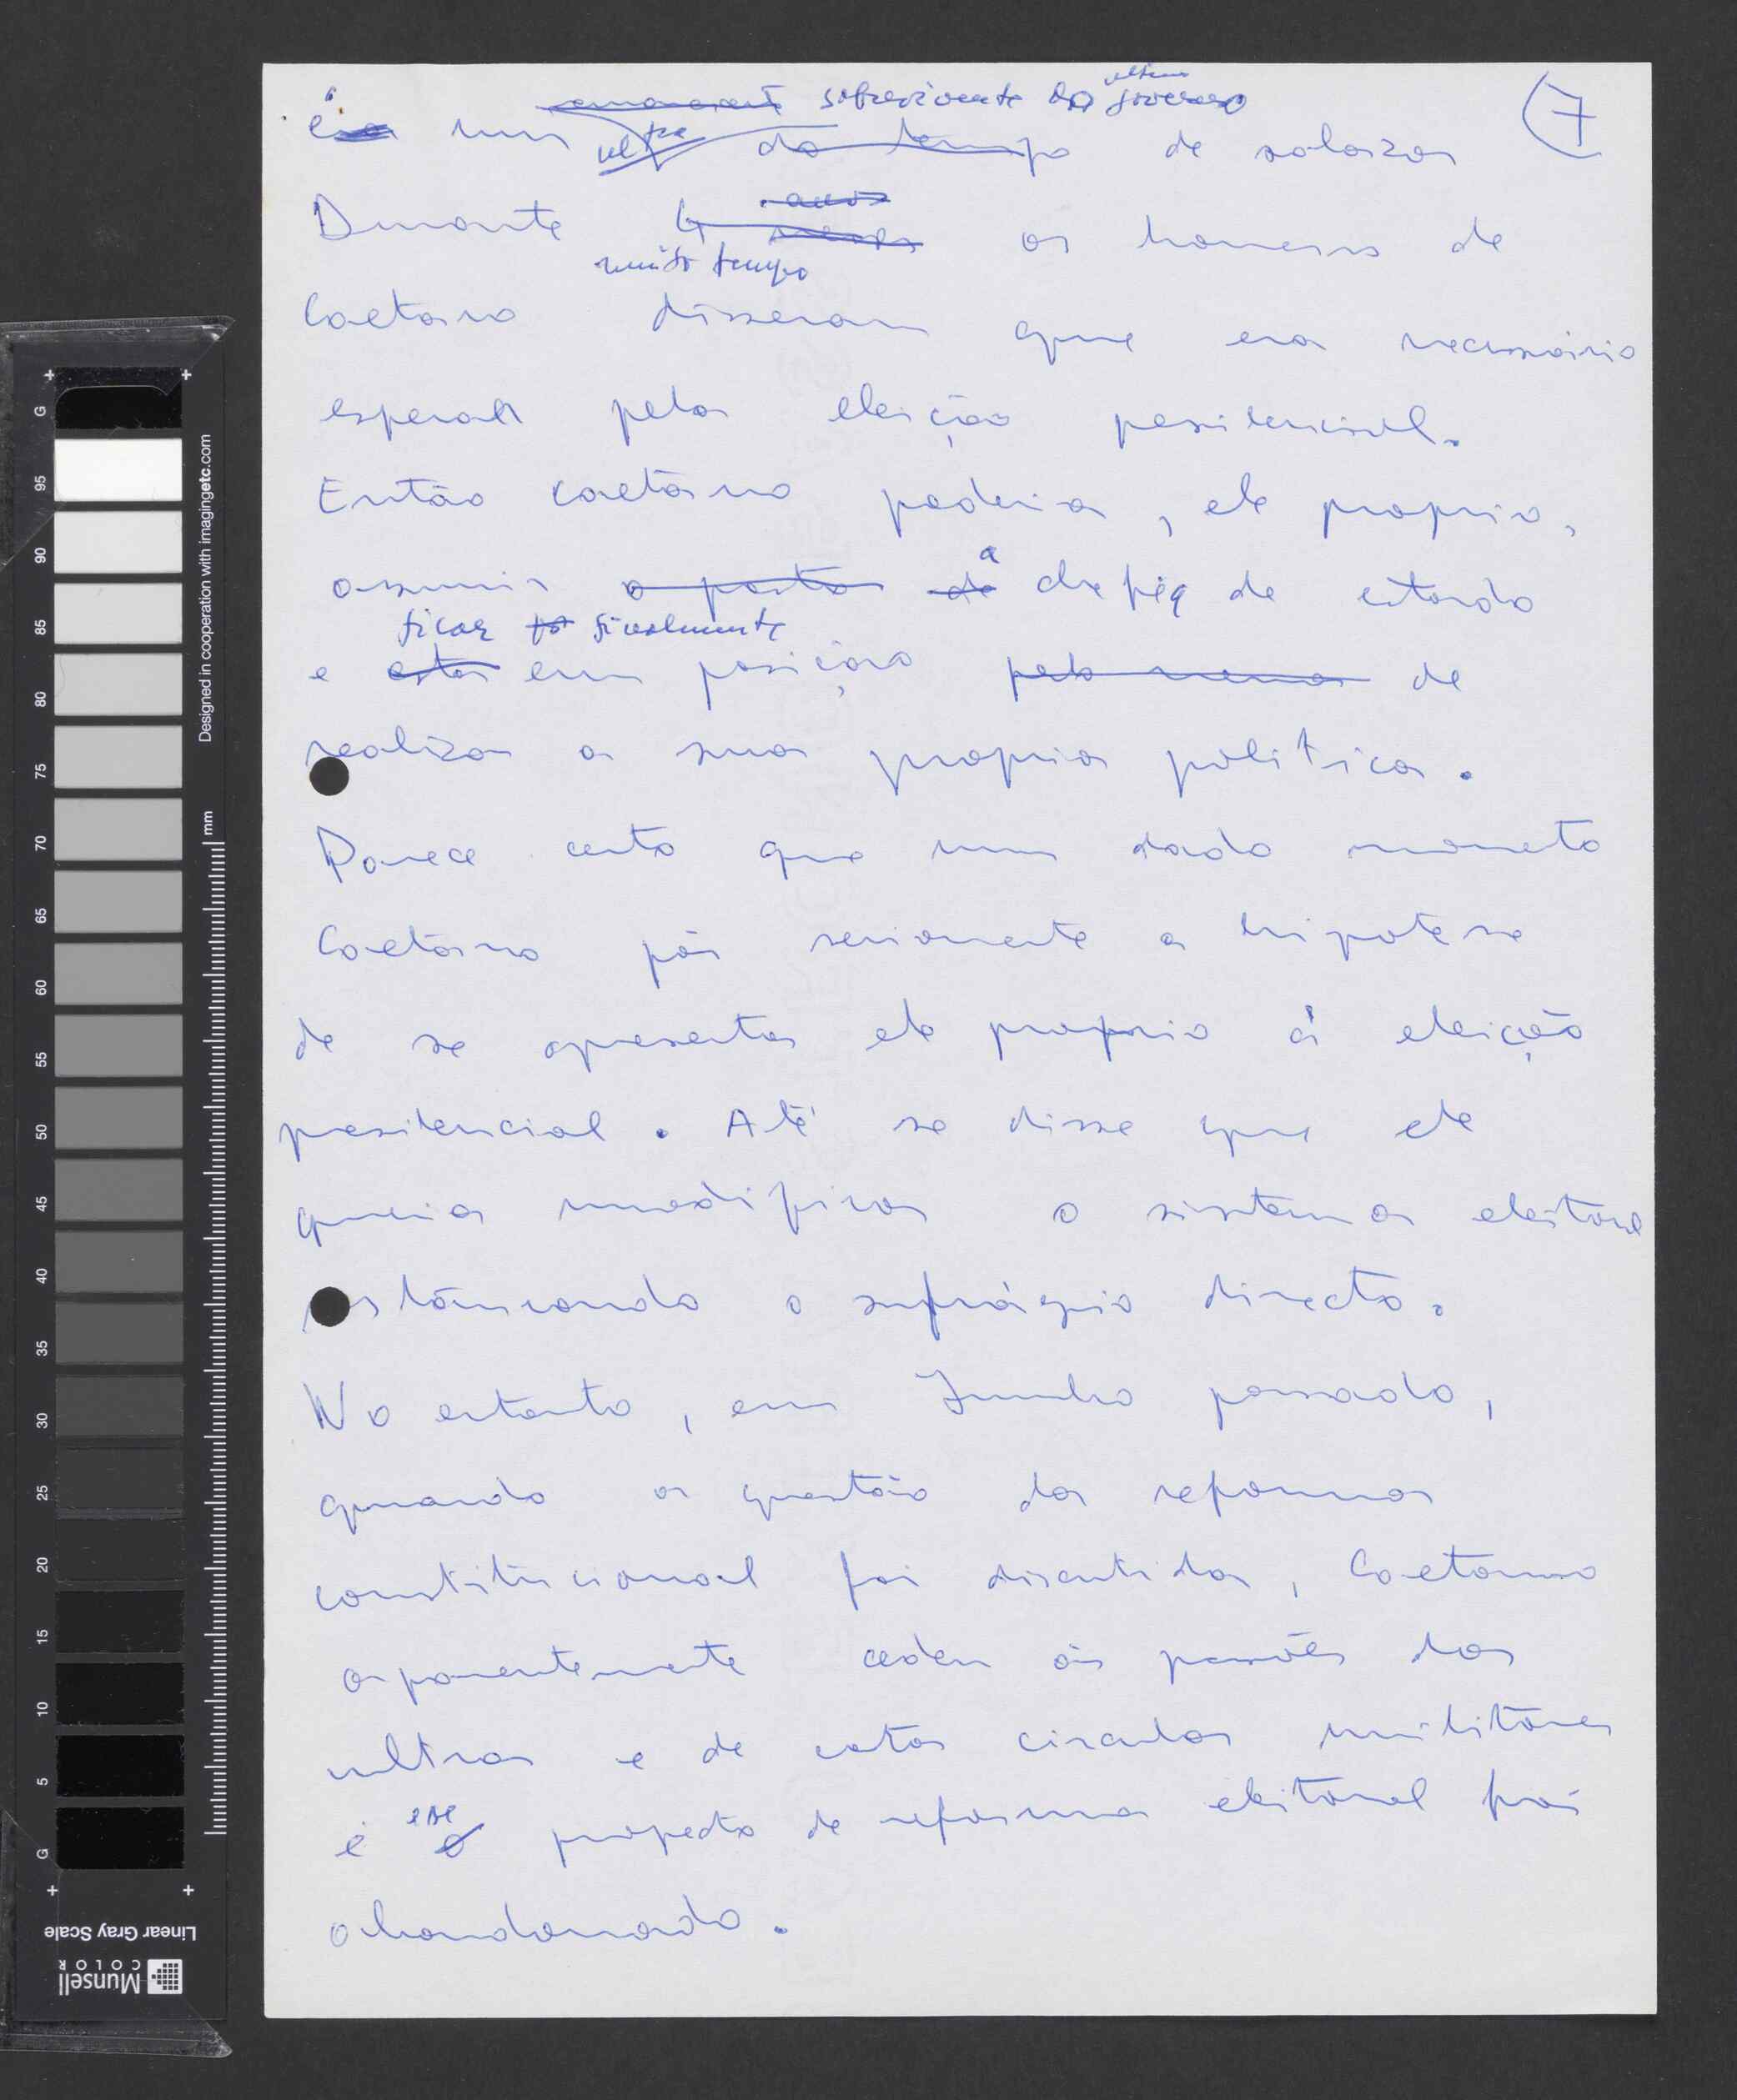 7
ultimo
sobrevivente do governo
é um ultra do tempo de salazar
anos
Durante 4 meses os homens de
muito tempo
Caetano disseram que era necessário
esperar pela eleição pesidencial.
Então Caetano poderia, ele proprio,
a
assumir o posto de chefia de estado
ficar finalmente
e estar em posição pelo menos de
realizar a sua propria politica.
Parece certo que num dado momento
Caetano pôs seriamente a hipotese
de se apresentar ele proprio á eleição
presidencial. Até se disse que ele
queria modificar o sistema eleitoral
o sufrágio directo.
No entanto, em Junho passado,
quando a questão da reforma
constitucional foi discutida, Caetano
aparentemente cedeu ás pressões dos
ultras e de certos circulos militares
esse
e o projecto de reforma eleitoral foi
abandonado.
Designed in cooperation with imagingetc.com
mm
G 95 90 85 80 75 70 65 60 55 50 45 40 35 30 25 20 15 10 5 G
Linear Gray Scale
Munsell
COLOR